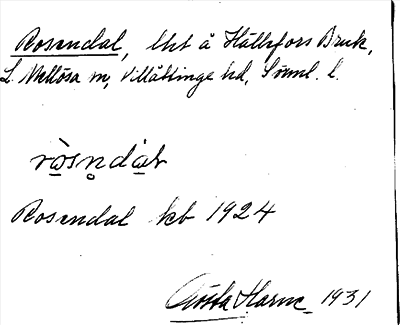 Rosendal, lht å Hällefors Bruk,
L. Mellösa sn, Villåttinge hd, Söml. l.
ròsn̥dàl
Rosendal kb 1924
Gösta Harne 1931